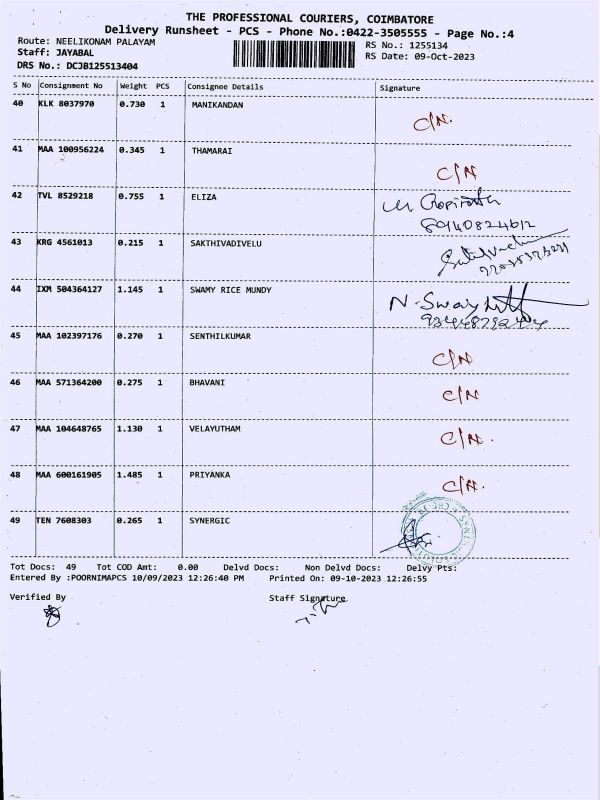 THE PROFESSIONAL COURIERS, COIMBATORE
Delivery Runsheet - PCS - Phone No.:0422-3505555 - Page No.:4
Route: NEELIKONAM PALAYAM
RS No.: 1255134
Staff: JAYABAL
RS Date: 09-Oct-2023
DRS No.: DCJB125513404
S No Consignment No Weight PCS Consignee Details Signature
40 KLK 8037970 0.730 1 MANIKANDAN
C/N.
41 MAA 100956224 0.345 1 THAMARAI
C/N
42 TVL 8529218 0.755 1 ELIZA
43 KRG 4561013 0.215 1 SAKTHIVADIVELU
44 IXM 504364127 1.145 1 SWAMY RICE MUNDY
45 MAA 102397176 0.270 1 SENTHILKUMAR
C/N
46 MAA 571364200 0.275 1 BHAVANI
C/N
47 MAA 104648765 1.130 1 VELAYUTHAM
C/N.
48 MAA 600161905 1.485 1 PRIYANKA
C/N.
49 TEN 7608303 0.265 1 SYNERGIC
Tot Docs: 49 Tot COD Amt: 0.00 Delvd Docs: Non Delvd Docs: Delvy Pts:
Entered By :POORNIMAPCS 10/09/2023 12:26:40 PM Printed On: 09-10-2023 12:26:55
Verified By Staff Signature